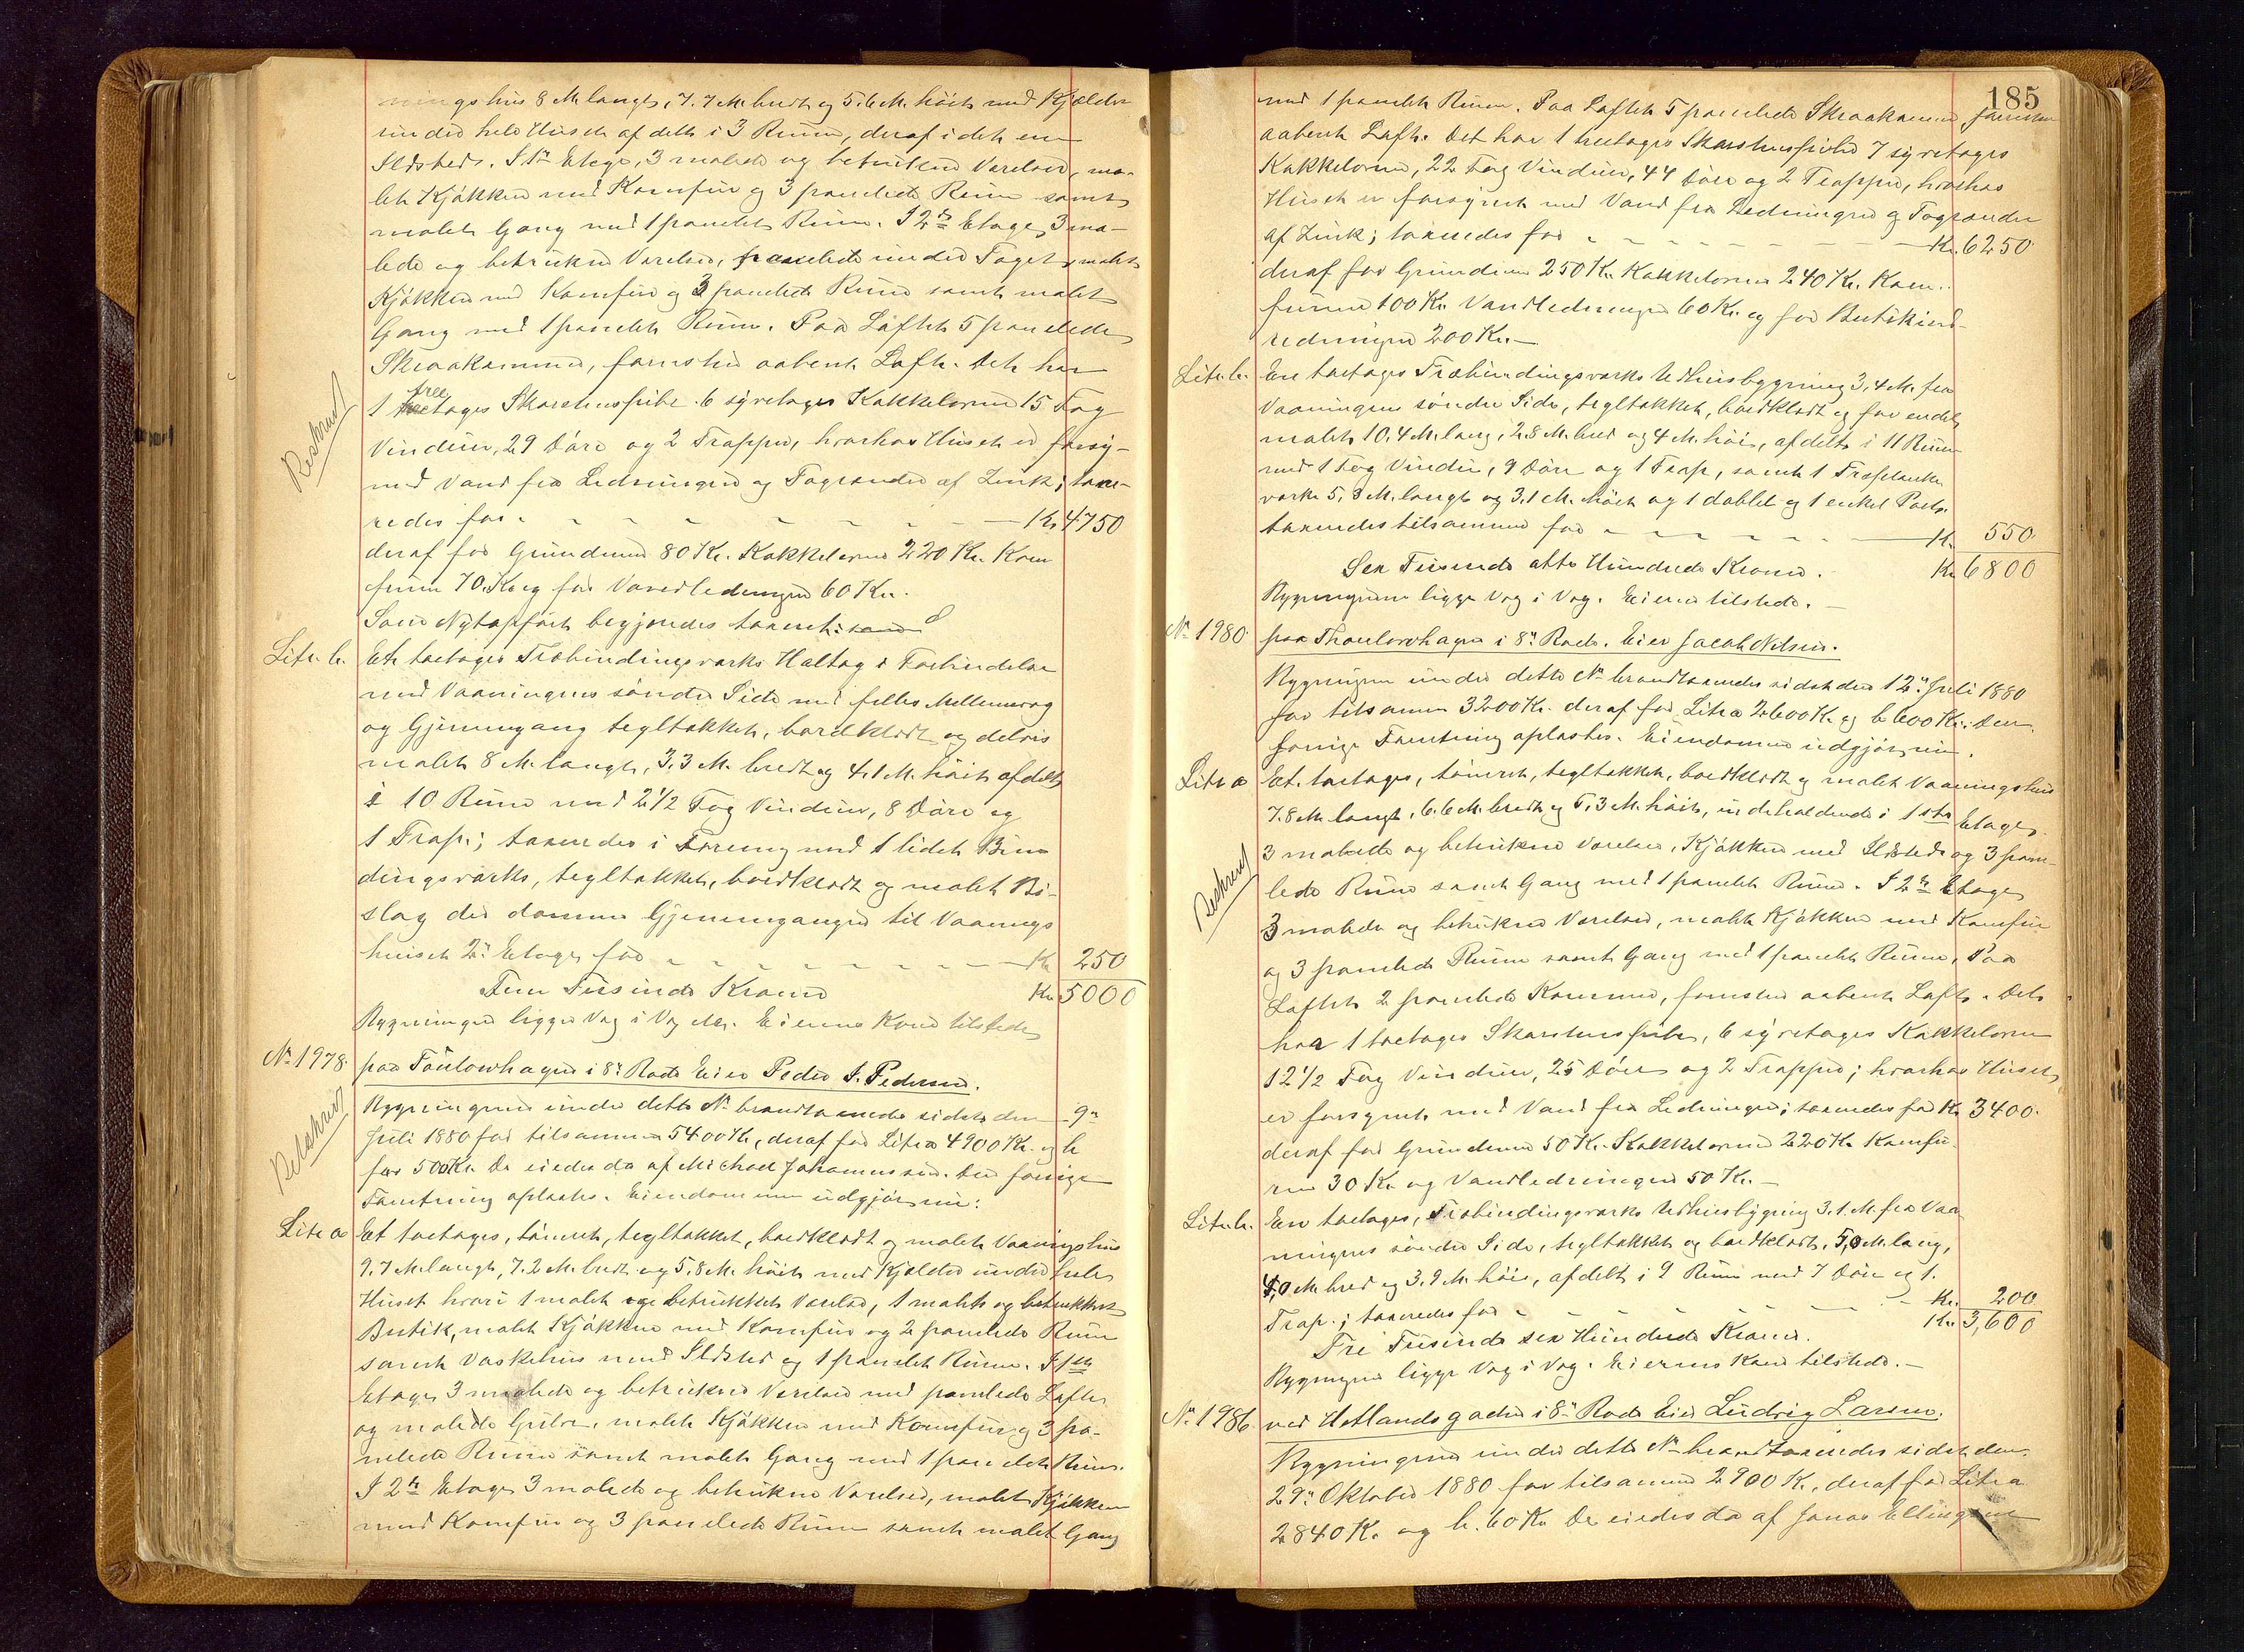 ningshus 8 M. langt, 7.7 M. bredt og 5.6 M. höit med Kjælder
under hele Huset afdelt i 3 Rum, deraf i det ene
Ildsted. I 1ste Etage, 3 malede og betrukne Værelser, ma-
let Kjökken med Komfur og 3 panelede Rum samt
malet Gang med 1 panelet Rum. I 2den Etage 3 ma-
lede og betrukne Værelser, panelede under Taget, malet
Kjökken med Komfur og 3 panelede Rum samt malet
Gang med 1 panelet Rum. Paa Loftet 5 panelede
Skraakammer, forresten aabent Loft. Det har
1 tree etages Skorstenspibe 6 syvetages Kakkelovne 15 Fag
Vinduer, 29 Döre og 2 Trapper, hvorhos Huset er forsy-
net med Vand fra Ledningen og Tagrender af Zink; taxe-
redes for - - - - Kr. 4750
deraf for Grunden 80 Kr. Kakkelovne 220 Kr. Kom
furer 70 Kr. og for Vandledningen 60 Kr.
Som Nyopfört begjæredes taxeret:
Beskrevet
Litr. b. Et toetages Træbindingsværks Halvtag i Forbindelse
med Vaaningens söndre Side med fælles Mellemvæg
og Gjennemgang tegltækket, bordklædt og delvis
malet 8 M. langt, 3,3 M. bredt og 4,1 M. höit afdelt
i 10 Rum med 2 1/2 Fag Vinduer, 8 Döre og
1 Trap.; taxeredes i Forening med 1 lidet Bin
dingsværks, tegltækket, bordklædt og malet Bi-
slag der danner Gjennemgangen til Vaanings
huset 2den Etage for - - - - Kr. 250
Fem Tusinde Kroner Kr. 5000
Bygningerne ligger Væg i Væg. Eierens Kone tilstede
No 1978. paa Toulowhagen i 8de Rode Eier Peder I. Pedersen.
Beskrevet
Bygningerne under dette No. brandtaxeredes sidst den 9de
Juli 1880 for tilsammen 5400 Kr., deraf for Litr a 4900 Kr. og b
for 500 Kr. De eiedes da af Michael Johannessen. Den forrige
Taxtering oplæstes. Eiendommen udgjör nu:
Litr a Et toetages, tömret, tegltækket, bordklædt og malet Vaaningshus
9,7 M. langt, 7.2 M. bredt og 5,8 M. höit med Kjælder under hele
Huset hvori 1 malet og betrukket Værelse, 1 malet og betrukket
Butik, malet Kjökken med Komfur og 2 panelede Rum
samt Vaskehus med Ildsted og 1 panelet Rum. I 1ste
Etage 3 malede og betrukne Værelser med panelede Lofter
og malede Gulve, malet Kjökken med Komfur og 3 pa-
nelede Rum samt malet Gang med 1 panelet Rum.
I 2den Etage 3 malede og betrukne Værelser, malet Kjökken
med Komfur og 3 panelede Rum samt malet Gang
185
med 1 panelet Rum. Paa Loftet 5 panelede Skraakammer forresten
aabent Loft. Det har 1 treetages Skorstenspibe 7 syvetages
Kakkelovne, 22 Fag Vinduer, 44 Döre og 2 Trapper, hvorhos
Huset er forsynet med Vand fra Ledningen og Tagrender
af Zink; taxeredes for - - - - Kr. 6250
deraf for Grunden 250 Kr. Kakkelovne 240 Kr. Kom-
furene 100 Kr. Vandledningen 60 Kr. og for Butikind-
redningen 200 Kr. —
Litr. b. En toetages Træbindingsværks Udhusbygning 3,4 M. fra
Vaaningens söndre Side, tegltækket, bordklædt og for endel
malet 10,4 M. lang, 2,8 M. bred og 4 M. höi, afdelt i 11 Rum
med 1 Fag Vindu, 9 Döre og 1 Trap, samt 1 Træplanke
værk 5,8 M. langt og 3,1 M. höit og 1 dobbelt og 1 enkel Port;
taxeredes tilsammen for - - - - Kr. 550
Sex Tusinde otte Hundrede Kroner. Kr. 6800
Bygningerne ligger Væg i Væg. Eieren tilstede. —
No 1980. paa Thoulowhagen i 8de Rode. Eier Jacob Nilsen.
Bygningerne under dette No. brandtaxeredes sidst den 12te Juli 1880
for tilsammen 3200 Kr. deraf for Litr a 2600 Kr. og b 600 Kr. Den
forrige Taxtering oplæstes. Eiendommen udgjör nu:
Litr a Et toetages, tömret, tegltækket, bordklædt og malet Vaaningshus
7.8 M. langt, 6.6 M. bredt og 5,3 M. höit, indeholdende i 1ste Etage
3 malede og betrukne Værelser, Kjökken med Ildsted og 3 pane-
lede Rum samt Gang med 1 panelet Rum. I 2den Etage
Beskrevet
3 malede og betrukne Værelser, malet Kjökken med Komfur
og 3 panelede Rum samt Gang med 1 panelet Rum. Paa
Loftet 2 panelede Kammer, forresten aabent Loft. Det
har 1 toetages Skorstenspibe, 6 syvetages Kakkelovne
12 1/2 Fag Vinduer, 25 Döre og 2 Trapper; hvorhos Huset
er forsynet med Vand fra Ledningen; taxeredes for Kr. 3400.
deraf for Grunden 50 Kr. Kakkelovne 220 Kr. Komfu-
rer 30 Kr. og Vandledningen 50 Kr. —
Litr. b. En toetages, Træbindingsværks Udhusbygning 3.1 M. fra Vaa
ningens söndre Side, tegltækket og bordklædt, 5,0 M. lang,
4,0 M. bred og 3.9 M. höi, afdelt i 9 Rum med 7 Döre og 1.
Trap.; taxeredes for - - - - Kr. 200
Tri Tusinde sex Hundrede Kroner. Kr. 3,600
Bygningerne ligger Væg i Væg. Eierens Kone tilstede. —
No 1986. ved Hetlandsgaden i 8de Rode Eier Ludvig Larsen.
Bygningerne under dette No. brandtaxeredes sidst den
29de Oktober 1880 for tilsammen 2900 Kr., deraf for Litr a
2840 Kr. og b. 60 Kr. De eiedes da af Jonas Ellingsen